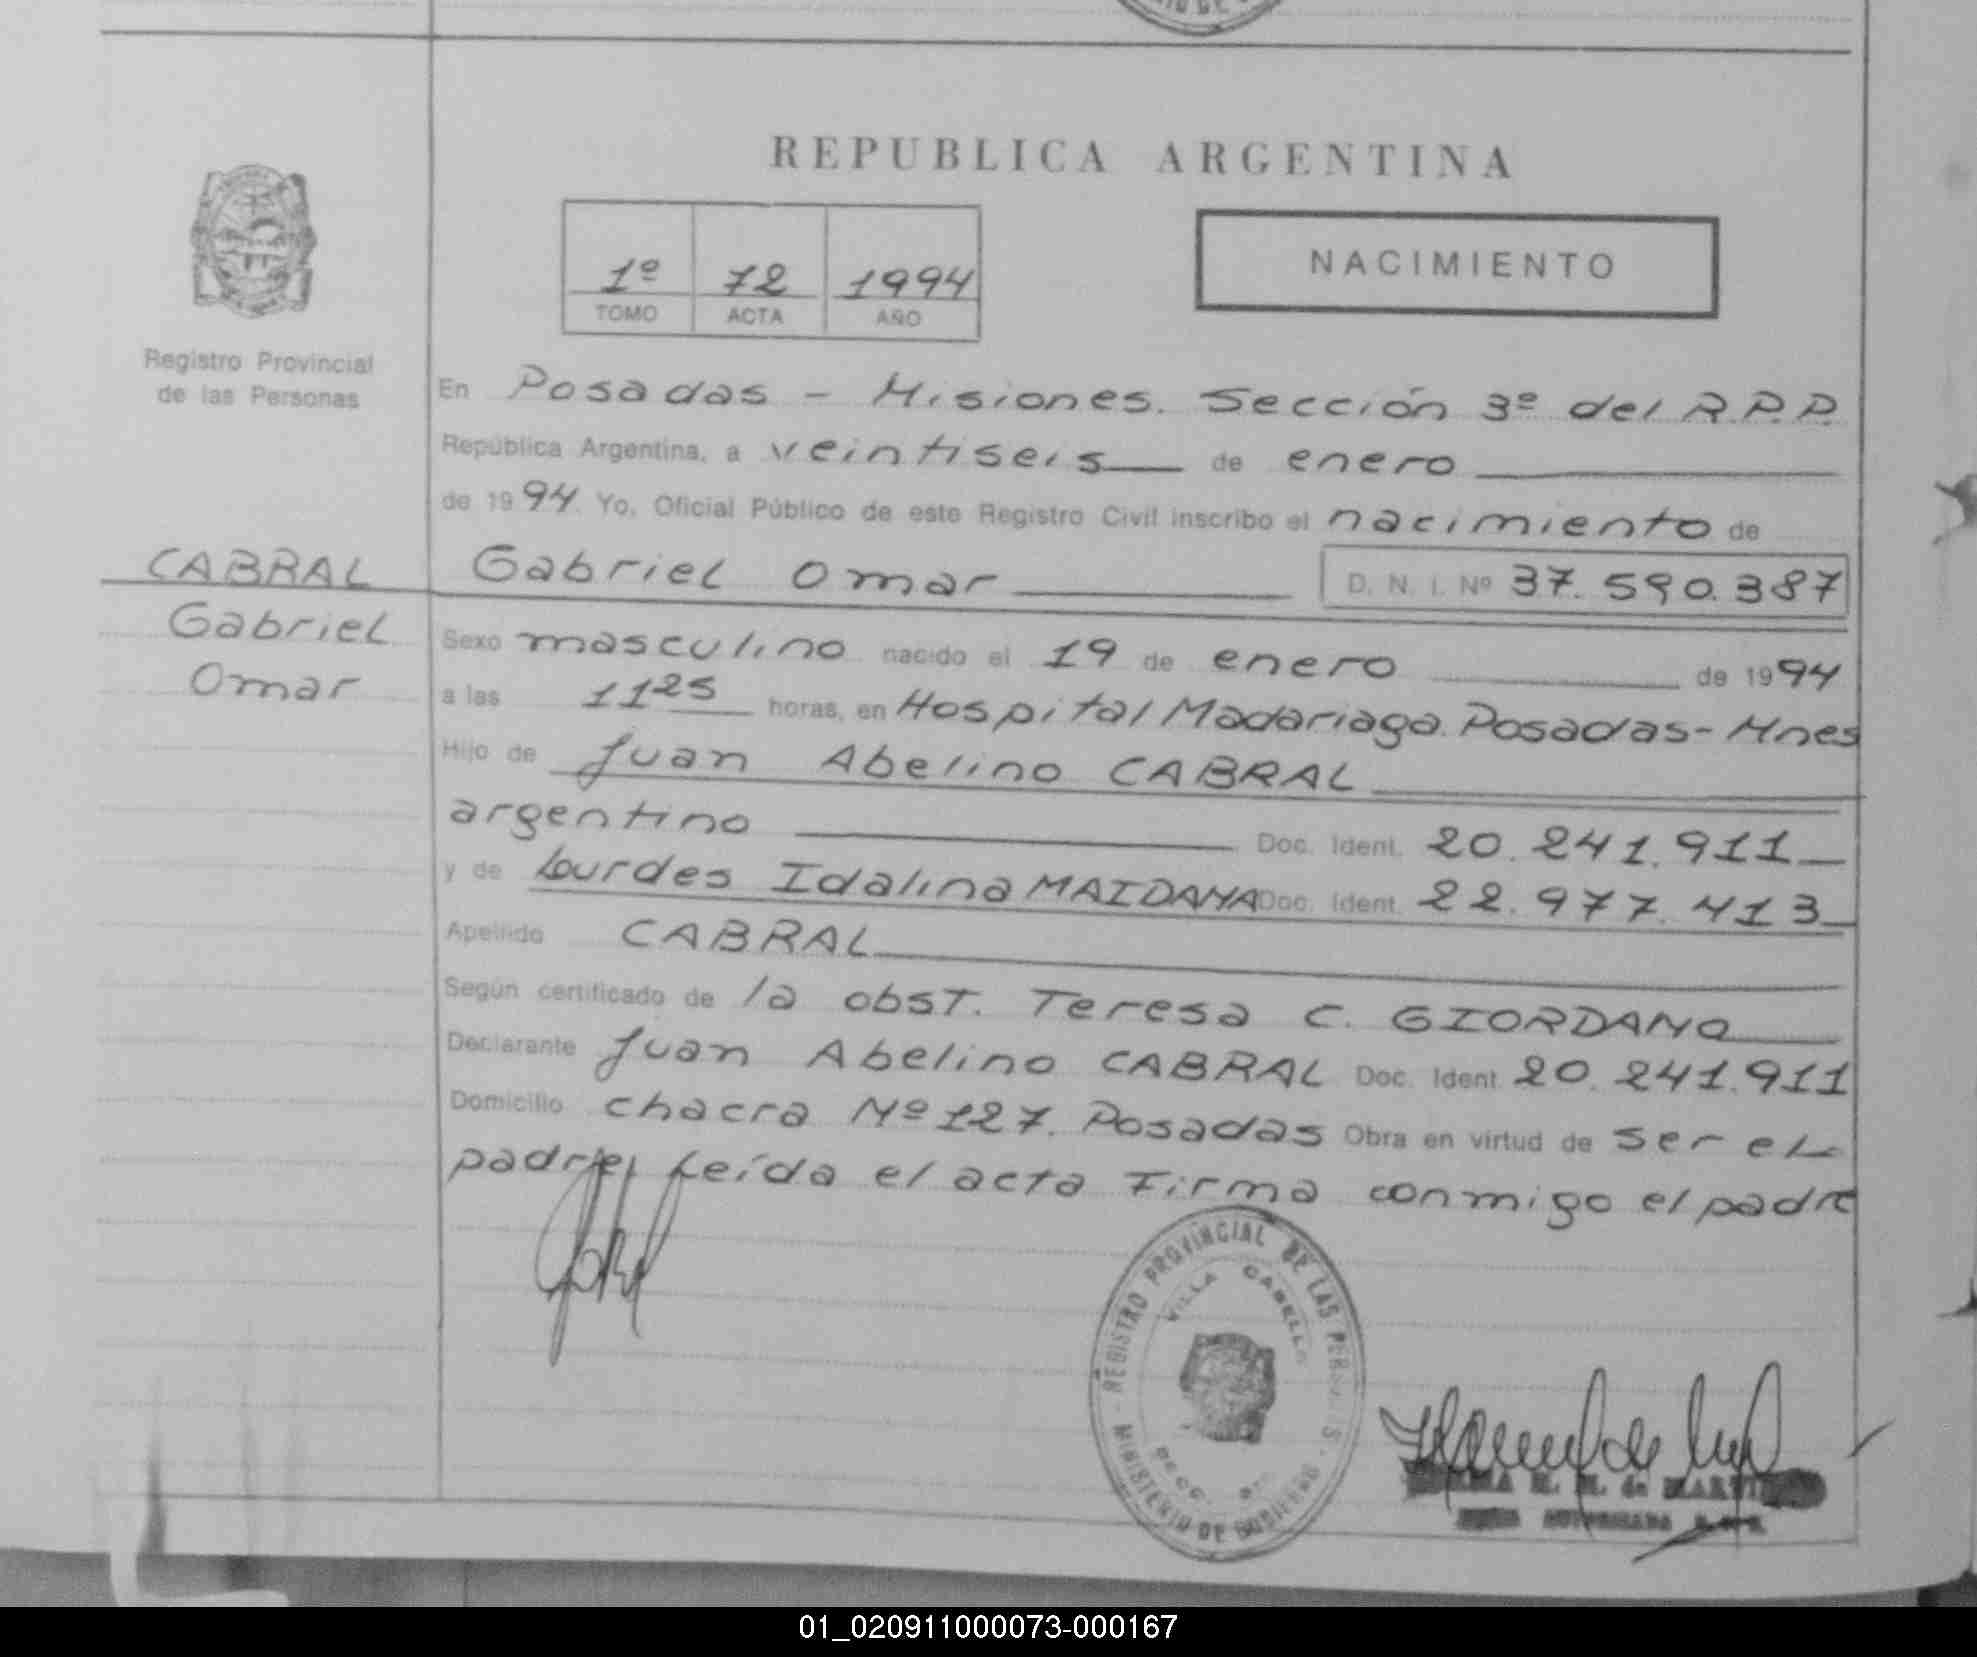 REPUBLICA ARGENTINA
NACIMIENTO
1º 72 1994
TOMO ACTA AÑO
Registro Provincial
de las Personas
En Posadas - Misiones. Sección 3º del R.P.P.
República Argentina, a veintiseis de enero
de 1994. Yo, Oficial Público de este Registro Civil inscribo el nacimiento de
CABRAL Gabriel Omar D. N. I. Nº 37.590.387
Gabriel
Omar
Sexo masculino nacido el 19 de enero de 1994
a las 11 25 horas, en Hospital Madariaga. Posadas-Mnes
Hijo de Juan Abelino CABRAL
argentino Doc. Ident. 20.241.911
y de Lourdes Idalina MAIDANA Doc. Ident. 22.977.413
Apellido CABRAL
Según certificado de la obst. Teresa C. GIORDANO
Declarante Juan Abelino CABRAL Doc. Ident. 20.241.911
Domicilio chacra Nº 127. Posadas Obra en virtud de ser el
padre, Leída el acta Firma conmigo el padre
REGISTRO PROVINCIAL DE LAS PERSONAS
VILLA CABELLO
MINISTERIO DE GOBIERNO
01_020911000073-000167